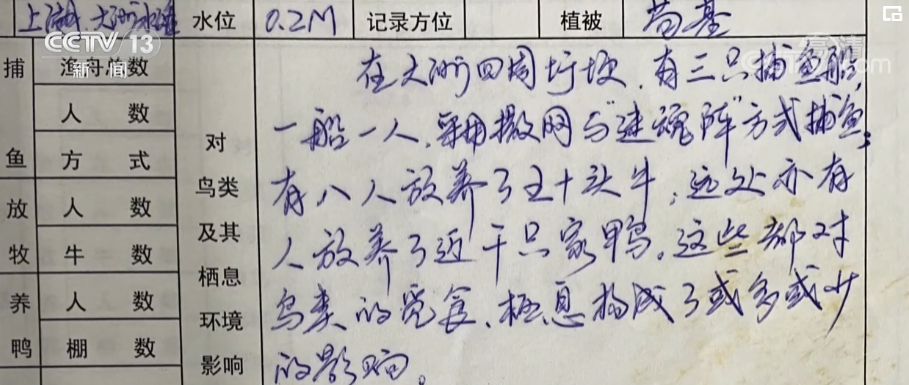 上湖 大洲水潭 水位 0.2M 记录方位 植被 苔基
CCTV 13
新闻
高清
.com
捕 渔舟总数
人 数
鱼 方 式
放 人 数
牧 牛 数
养 人 数
鸭 棚 数
对
鸟类
及其
栖息
环境
影响
在大洲四周圩埂，有三只捕鱼船
一船一人，采用撒网与“迷魂阵”方式捕鱼；
有八人放养了五十头牛；远处亦有
人放养了近千只家鸭。这些都对
鸟类的觅食、栖息构成了或多或少
的影响。